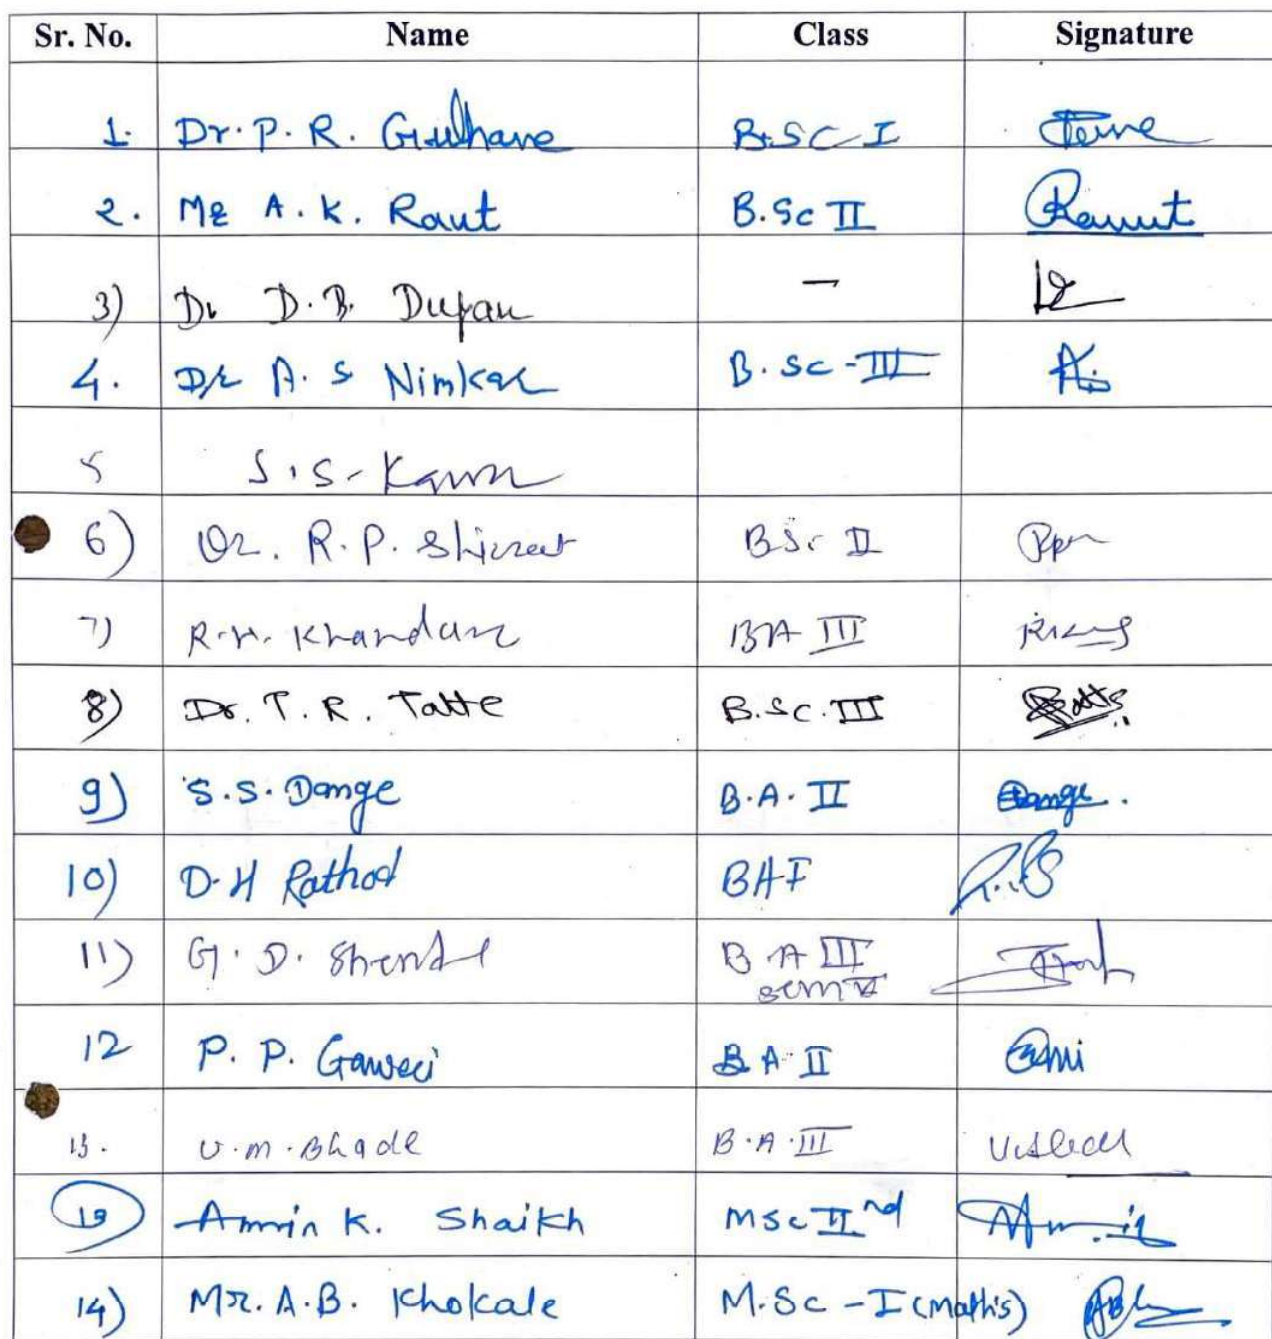 Sr. No. Name Class Signature
1. Dr. P. R. Gulhane B.SC I
2. Mr A. K. Raut B.Sc II Raut
3) Dr D. B. Dufau -
4. Dr A. S Nimkar B. Sc - III
5 S. S. Kawre
6) Dr. R. P. BSc II
7) R. H. Khandare BA III
8) Dr. T. R. Tatte B.Sc. III Tatte
9) S. S. Dange B. A. II Dange.
10) D. H Rathod BA I
11) G. D. Shende B A III
sem V
12 P. P. Gawai B A II
13. V. M. Bhade B. A. III
13 Amin K. Shaikh MSc II nd Amin
14) Mr. A. B. Khokale M.Sc - I (maths)